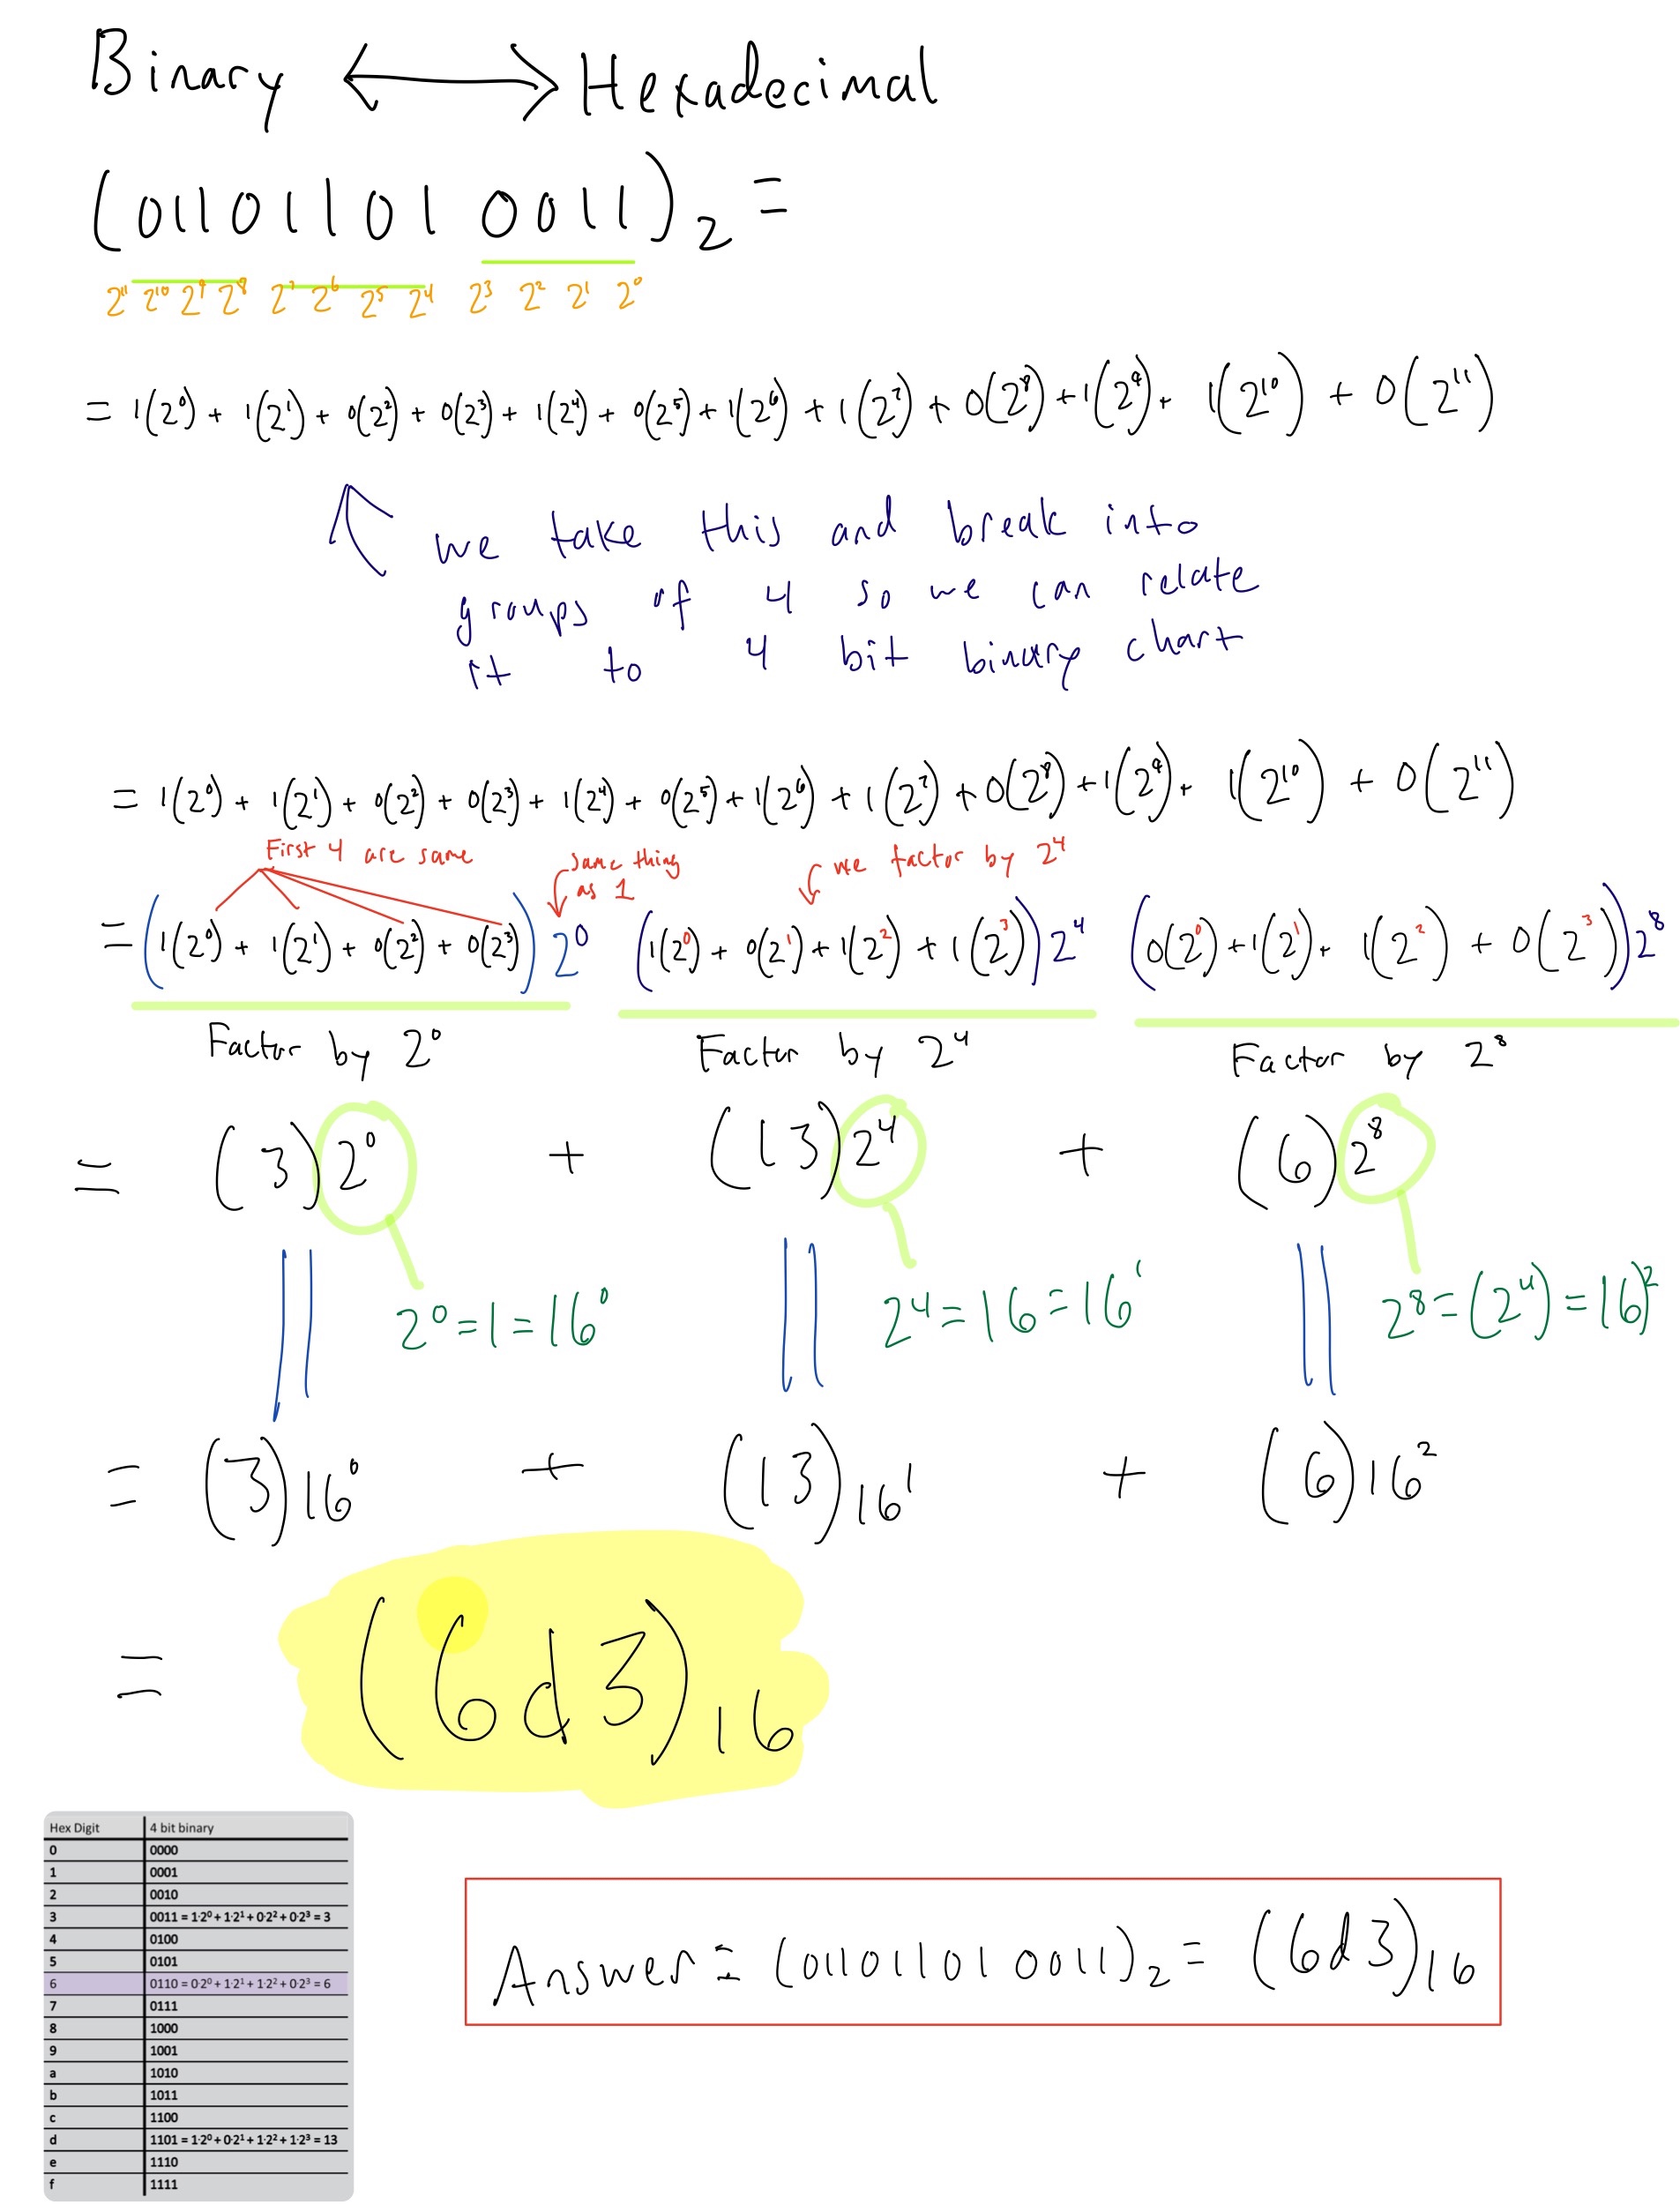 Binary ⟷ Hexadecimal
(011011010011)₂ =
2¹¹ 2¹⁰ 2⁹ 2⁸ 2⁷ 2⁶ 2⁵ 2⁴ 2³ 2² 2¹ 2⁰
= 1(2⁰) + 1(2¹) + 0(2²) + 0(2³) + 1(2⁴) + 0(2⁵) + 1(2⁶) + 1(2⁷) + 0(2⁸) + 1(2⁹) + 1(2¹⁰) + 0(2¹¹)
we take this and break into
groups of 4 so we can relate
it to 4 bit binary chart
= 1(2⁰) + 1(2¹) + 0(2²) + 0(2³) + 1(2⁴) + 0(2⁵) + 1(2⁶) + 1(2⁷) + 0(2⁸) + 1(2⁹) + 1(2¹⁰) + 0(2¹¹)
First 4 are same
same thing
as 1
we factor by 2⁴
= (1(2⁰) + 1(2¹) + 0(2²) + 0(2³)) 2⁰ (1(2⁰) + 0(2¹) + 1(2²) + 1(2³)) 2⁴ (0(2⁰) + 1(2¹) + 1(2²) + 0(2³)) 2⁸
Factor by 2⁰ Factor by 2⁴ Factor by 2⁸
= (3) 2⁰ + (13) 2⁴ + (6) 2⁸
2⁰ = 1 = 16⁰ 2⁴ = 16 = 16¹ 2⁸ = (2⁴) = 16)²
= (3) 16⁰ + (13) 16¹ + (6) 16²
= (6d3)₁₆
Hex Digit 4 bit binary
0 0000
1 0001
2 0010
3 0011 = 1·2⁰ + 1·2¹ + 0·2² + 0·2³ = 3
4 0100
5 0101
6 0110 = 0·2⁰ + 1·2¹ + 1·2² + 0·2³ = 6
7 0111
8 1000
9 1001
a 1010
b 1011
c 1100
d 1101 = 1·2⁰ + 0·2¹ + 1·2² + 1·2³ = 13
e 1110
f 1111
Answer = (011011010011)₂ = (6d3)₁₆